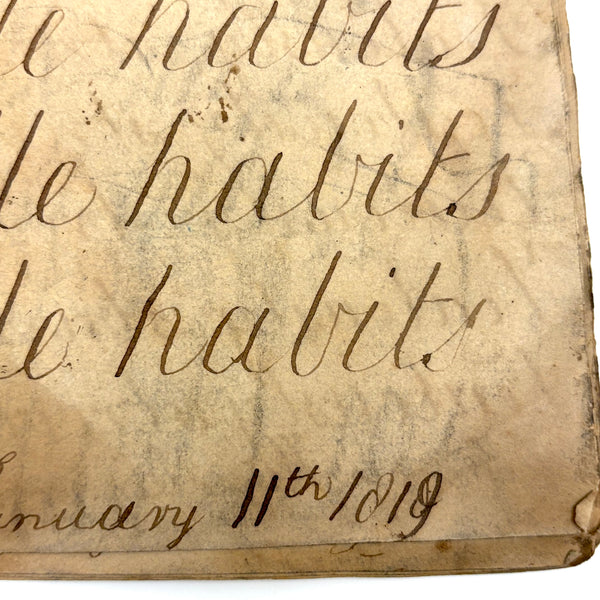 le habits
le habits
le habits
January 11th 1819